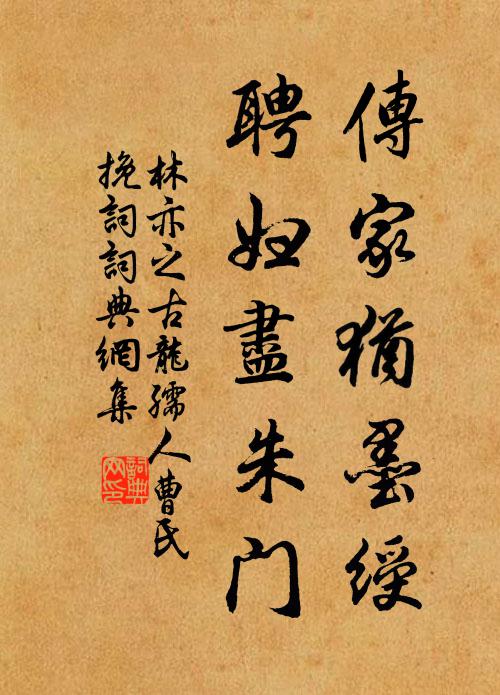 傳家猶墨綬
聘婦盡朱門
林亦之古龍孺人曹氏
挽詞詞典網集
詞典网印